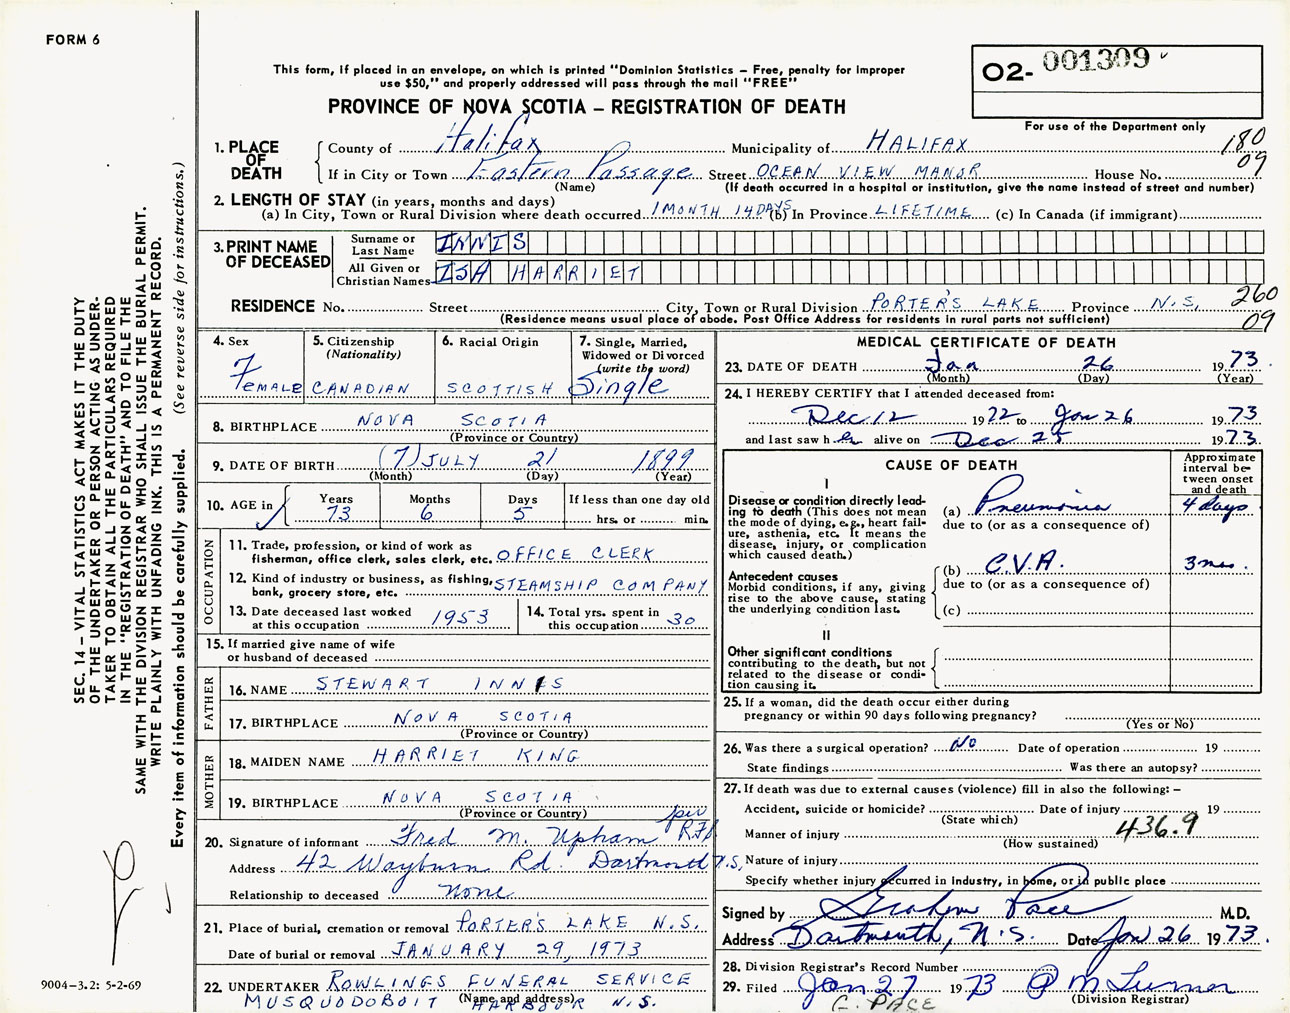 FORM 6
This form, if placed in an envelope, on which is printed "Dominion Statistics – Free, penalty for improper
use $50," and properly addressed will pass through the mail "FREE"
PROVINCE OF NOVA SCOTIA – REGISTRATION OF DEATH
O2- 001309
For use of the Department only
180
09
1. PLACE OF DEATH
County of Halifax Municipality of HALIFAX
If in City or Town Eastern Passage Street OCEAN VIEW MANOR House No.
(Name) (If death occurred in a hospital or institution, give the name instead of street and number)
2. LENGTH OF STAY (in years, months and days)
(a) In City, Town or Rural Division where death occurred 1 MONTH 14 DAYS (b) In Province LIFETIME (c) In Canada (if immigrant)
3. PRINT NAME OF DECEASED
Surname or Last Name INNIS
All Given or Christian Names ISA HARRIET
RESIDENCE No. Street City, Town or Rural Division PORTER'S LAKE Province N.S.
(Residence means usual place of abode. Post Office Address for residents in rural parts not sufficient)
260
09
4. Sex
7
FEMALE
5. Citizenship
(Nationality)
CANADIAN
6. Racial Origin
SCOTTISH
7. Single, Married,
Widowed or Divorced
(write the word)
Single
8. BIRTHPLACE NOVA SCOTIA
(Province or Country)
9. DATE OF BIRTH (7) JULY 21 1899
(Month) (Day) (Year)
10. AGE in
Years Months Days If less than one day old
73 6 5 hrs. or min.
OCCUPATION
11. Trade, profession, or kind of work as
fisherman, office clerk, sales clerk, etc. OFFICE CLERK
12. Kind of industry or business, as fishing,
bank, grocery store, etc. STEAMSHIP COMPANY
13. Date deceased last worked
at this occupation 1953
14. Total yrs. spent in
this occupation 30
15. If married give name of wife
or husband of deceased
FATHER
16. NAME STEWART INNIS
17. BIRTHPLACE NOVA SCOTIA
(Province or Country)
MOTHER
18. MAIDEN NAME HARRIET KING
19. BIRTHPLACE NOVA SCOTIA
(Province or Country)
20. Signature of informant Fred M. Upham
Address 42 Wayburn Rd. Dartmouth N.S.
Relationship to deceased None
21. Place of burial, cremation or removal PORTER'S LAKE N.S.
Date of burial or removal JANUARY 29, 1973
22. UNDERTAKER ROWLINGS FUNERAL SERVICE
(Name and address)
MUSQUODOBOIT HARBOUR N.S.
MEDICAL CERTIFICATE OF DEATH
23. DATE OF DEATH Jan 26 1973
(Month) (Day) (Year)
24. I HEREBY CERTIFY that I attended deceased from:
Dec 12 1972 to Jan 26 1973
and last saw her alive on Dec 25 1973
CAUSE OF DEATH
Approximate
interval be-
tween onset
and death
I
Disease or condition directly lead-
ing to death (This does not mean
the mode of dying, e.g., heart fail-
ure, asthenia, etc. It means the
disease, injury, or complication
which caused death.)
(a) Pneumonia 4 days
due to (or as a consequence of)
Antecedent causes
Morbid conditions, if any, giving
rise to the above cause, stating
the underlying condition last.
(b) C.V.A. 3 mos.
due to (or as a consequence of)
(c)
II
Other significant conditions
contributing to the death, but not
related to the disease or condi-
tion causing it.
25. If a woman, did the death occur either during
pregnancy or within 90 days following pregnancy?
(Yes or No)
26. Was there a surgical operation? No Date of operation 19
State findings Was there an autopsy?
27. If death was due to external causes (violence) fill in also the following: –
Accident, suicide or homicide? Date of injury 19
(State which)
Manner of injury 436.9
(How sustained)
Nature of injury
Specify whether injury occurred in industry, in home, or in public place
Signed by Graham Pace M.D.
Address Dartmouth, N.S. Date Jan 26 1973.
28. Division Registrar's Record Number
29. Filed Jan 27 1973 P M Turner
(Division Registrar)
G. PACE
SEC. 14 – VITAL STATISTICS ACT MAKES IT THE DUTY
OF THE UNDERTAKER OR PERSON ACTING AS UNDER-
TAKER TO OBTAIN ALL THE PARTICULARS REQUIRED
IN THE "REGISTRATION OF DEATH" AND TO FILE THE
SAME WITH THE DIVISION REGISTRAR WHO SHALL ISSUE THE BURIAL PERMIT.
WRITE PLAINLY WITH UNFADING INK. THIS IS A PERMANENT RECORD.
Every item of information should be carefully supplied. (See reverse side for instructions.)
9004–3.2: 5-2-69